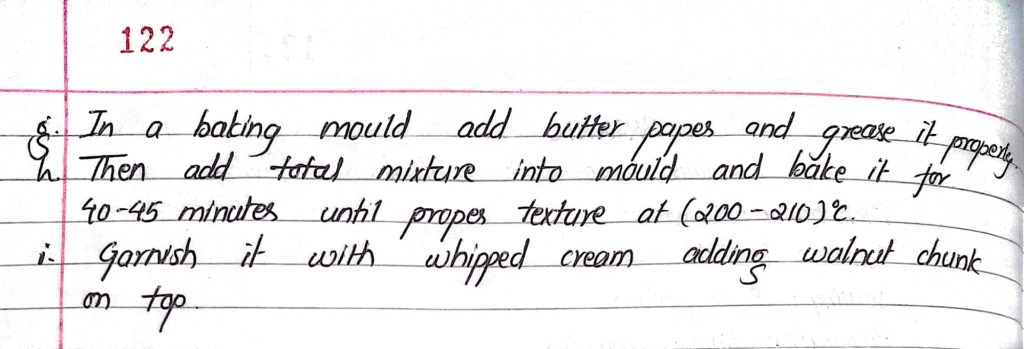 122
g. In a baking mould add butter paper and grease it properly.
h Then add total mixture into mould and bake it for
40-45 minutes until proper texture at (200-210)°c.
i. Garnish it with whipped cream adding walnut chunk
on top.